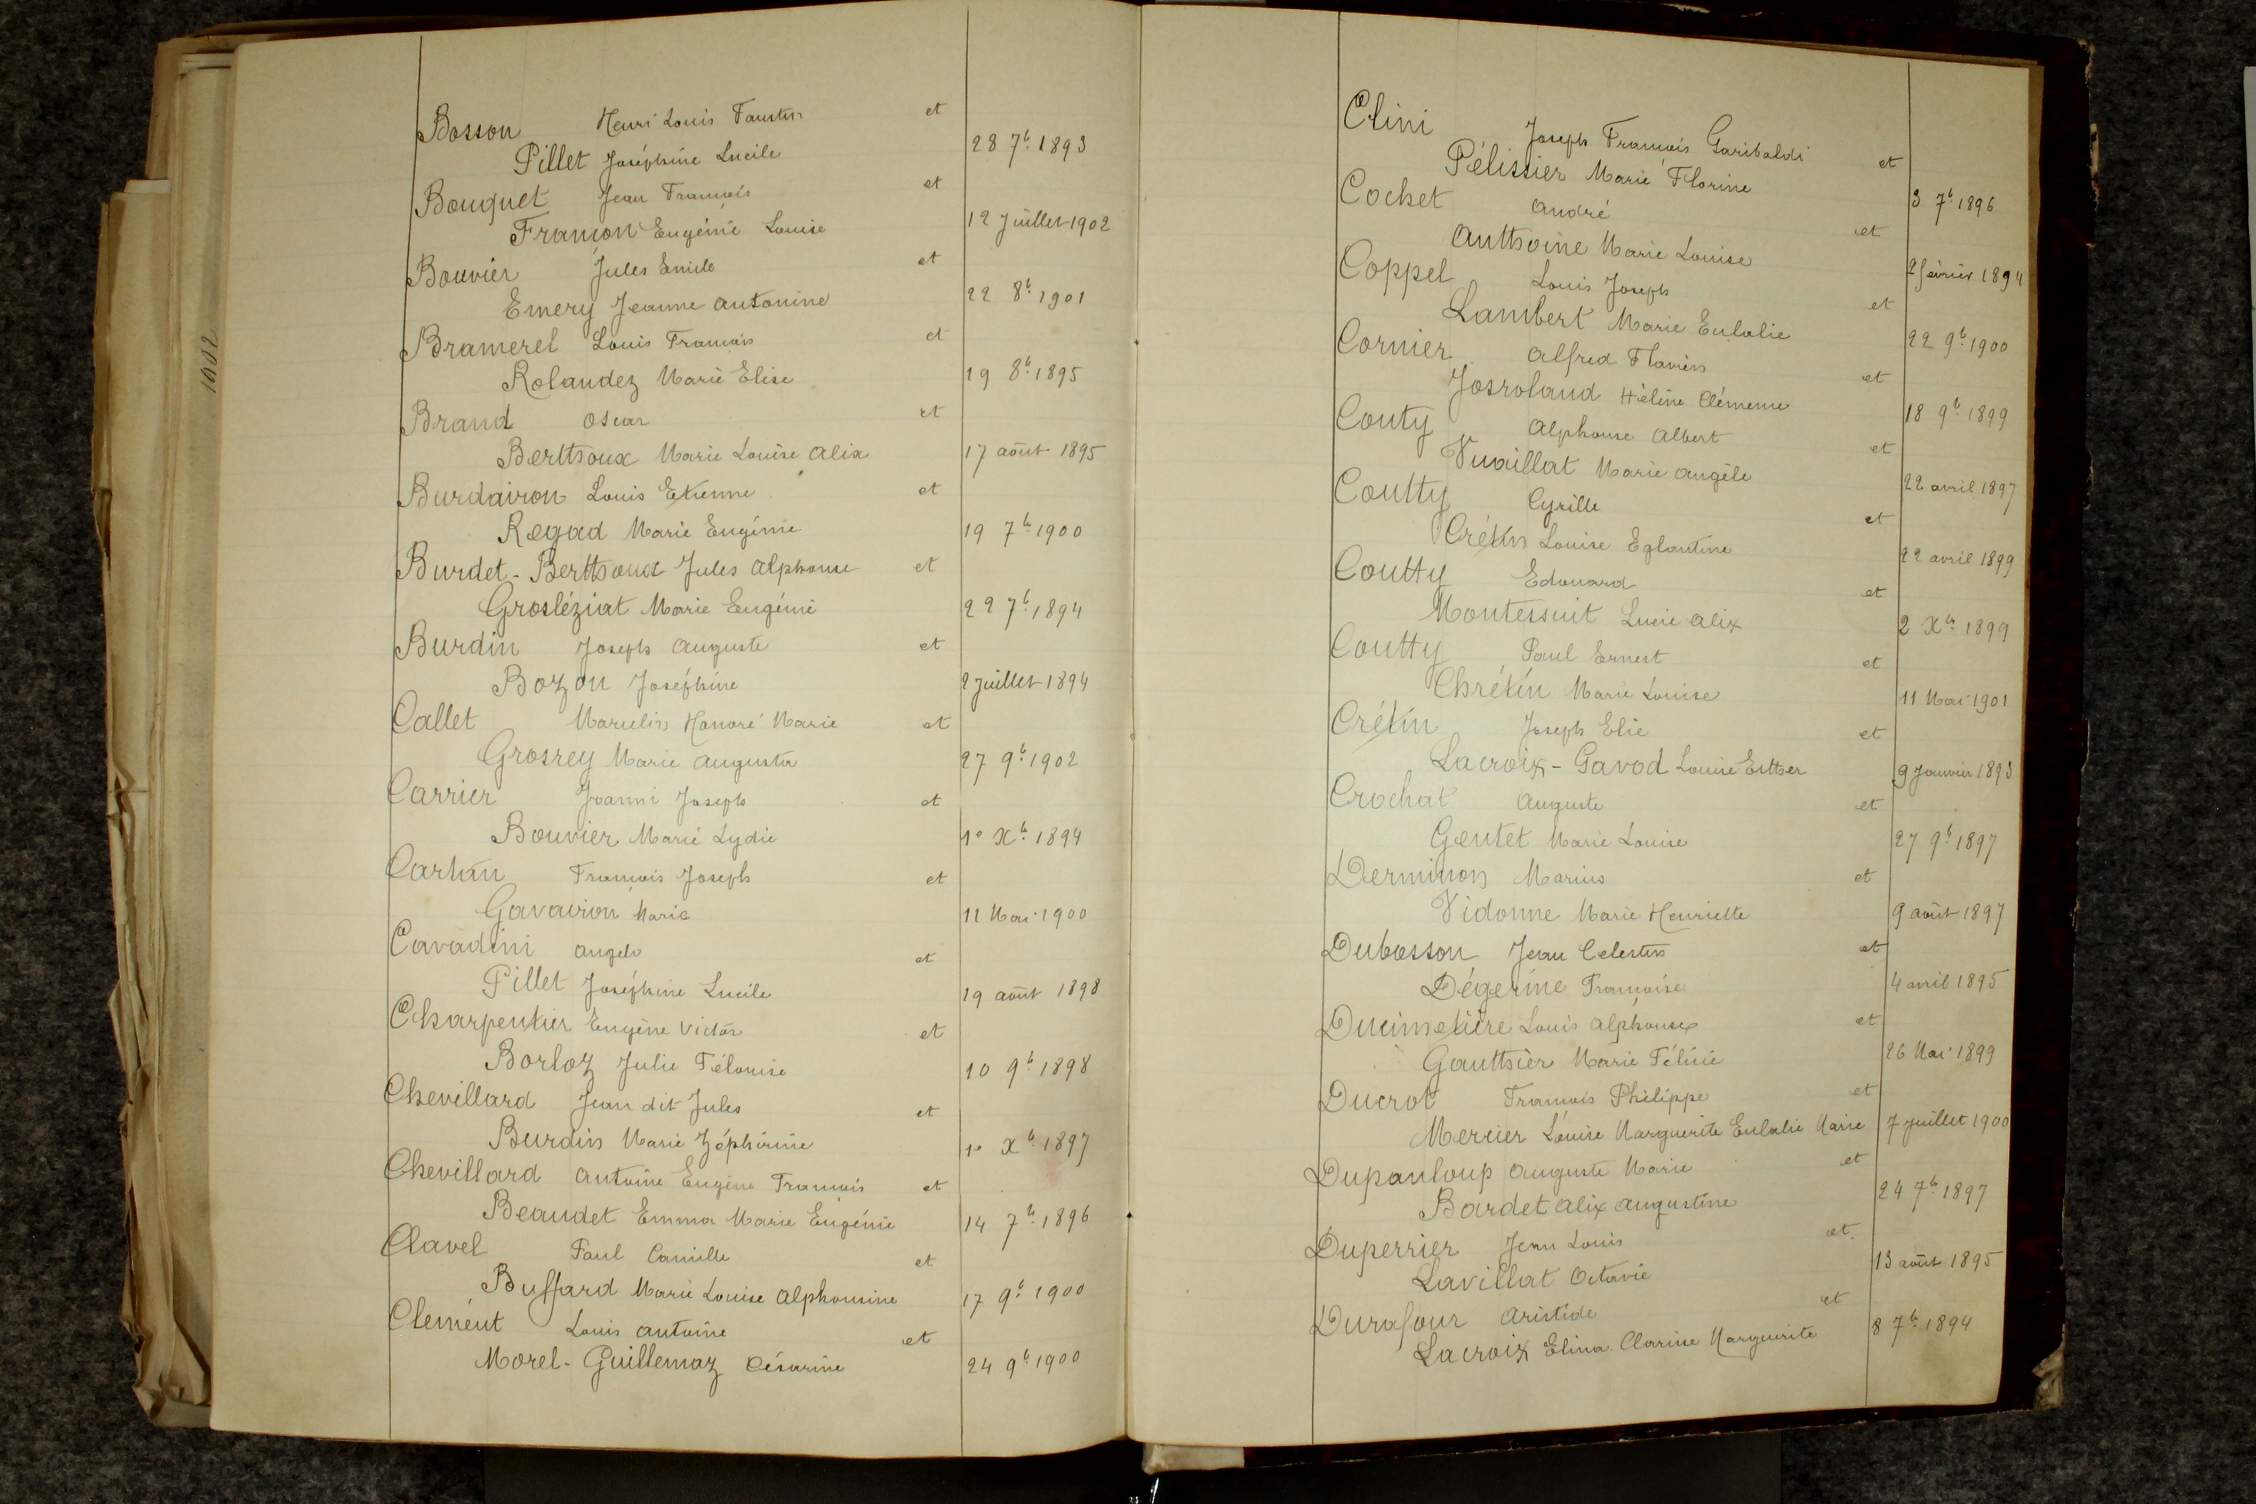 Bosson Henri Louis Faustin et
Pillet Joséphine Lucile 28 7b 1893
Bouquet Jean François et
Françon Eugénie Louise 12 Juillet 1902
Bouvier Jules Emile et
Emery Jeanne Antonine 22 8b 1901
Bramerel Louis François et
Rolandez Marie Elise 19 8b 1895
Brand Oscar et
Berthoux Marie Louise Alix 17 août 1895
Burdairon Louis Etienne et
Regad Marie Eugénie 19 7b 1900
Burdet-Berthoud Jules Alphonse et
Grosléziat Marie Eugénie 22 7b 1894
Burdin Joseph Auguste et
Bozon Joséphine 2 Juillet 1894
Callet Marcelin Honoré Marie et
Grosrey Marie Augusta 27 9b 1902
Carrier Joanni Joseph et
Bouvier Marie Lydie 1e Xb 1894
Carlin François Joseph et
Gavairon Marie 11 Mai 1900
Cavadini Angelo et
Pillet Joséphine Lucile 19 août 1898
Charpentier Eugène Victor et
Borloz Julie Félouise 10 9b 1898
Chevillard Jean dit Jules et
Burdin Marie Zéphirine 1e Xb 1897
Chevillard Antoine Eugène François et
Beaudet Emma Marie Eugénie 14 7b 1896
Clavel Paul Camille et
Buffard Marie Louise Alphonsine 17 9b 1900
Clement Louis Antoine et
Morel-Guillemaz Césarine 24 9b 1900
1902
Clini Joseph François Garibaldi et
Pélissier Marie Florine 3 7b 1896
Cochet André et
Anthoine Marie Louise 2 février 1894
Coppel Louis Joseph et
Lambert Marie Eulalie 22 9b 1900
Cornier Alfred Flavien et
Josroland Hélène Clémence 18 9b 1899
Couty Alphonse Albert et
Vuaillat Marie Angèle 22 avril 1897
Coutty Cyrille et
Crétin Louise Eglantine 22 avril 1899
Coutty Edouard et
Montessuit Lucie Alix 2 Xb 1899
Coutty Paul Ernest et
Chrétin Marie Louise 11 Mai 1901
Crétin Joseph Elie et
Lacroix-Gavod Louise Esther 9 Janvier 1893
Crochat Auguste et
Gentet Marie Louise 27 9b 1897
Derminon Marius et
Vidonne Marie Henriette 9 août 1897
Dubosson Jean Celestin et
Dégerine Françoise 4 avril 1895
Ducimetière Louis Alphonse et
Gauthier Marie Félicie 26 Mai 1899
Ducrot François Philippe et
Mercier Louise Marguerite Eulalie Marie 7 juillet 1900
Dupanloup Auguste Marie et
Bardet Alix Augustine 24 7b 1897
Duperrier Jean Louis et
Lavillat Octavie 13 août 1895
Durafour Aristide et
Lacroix Elina Clarisse Marguerite 8 7b 1894